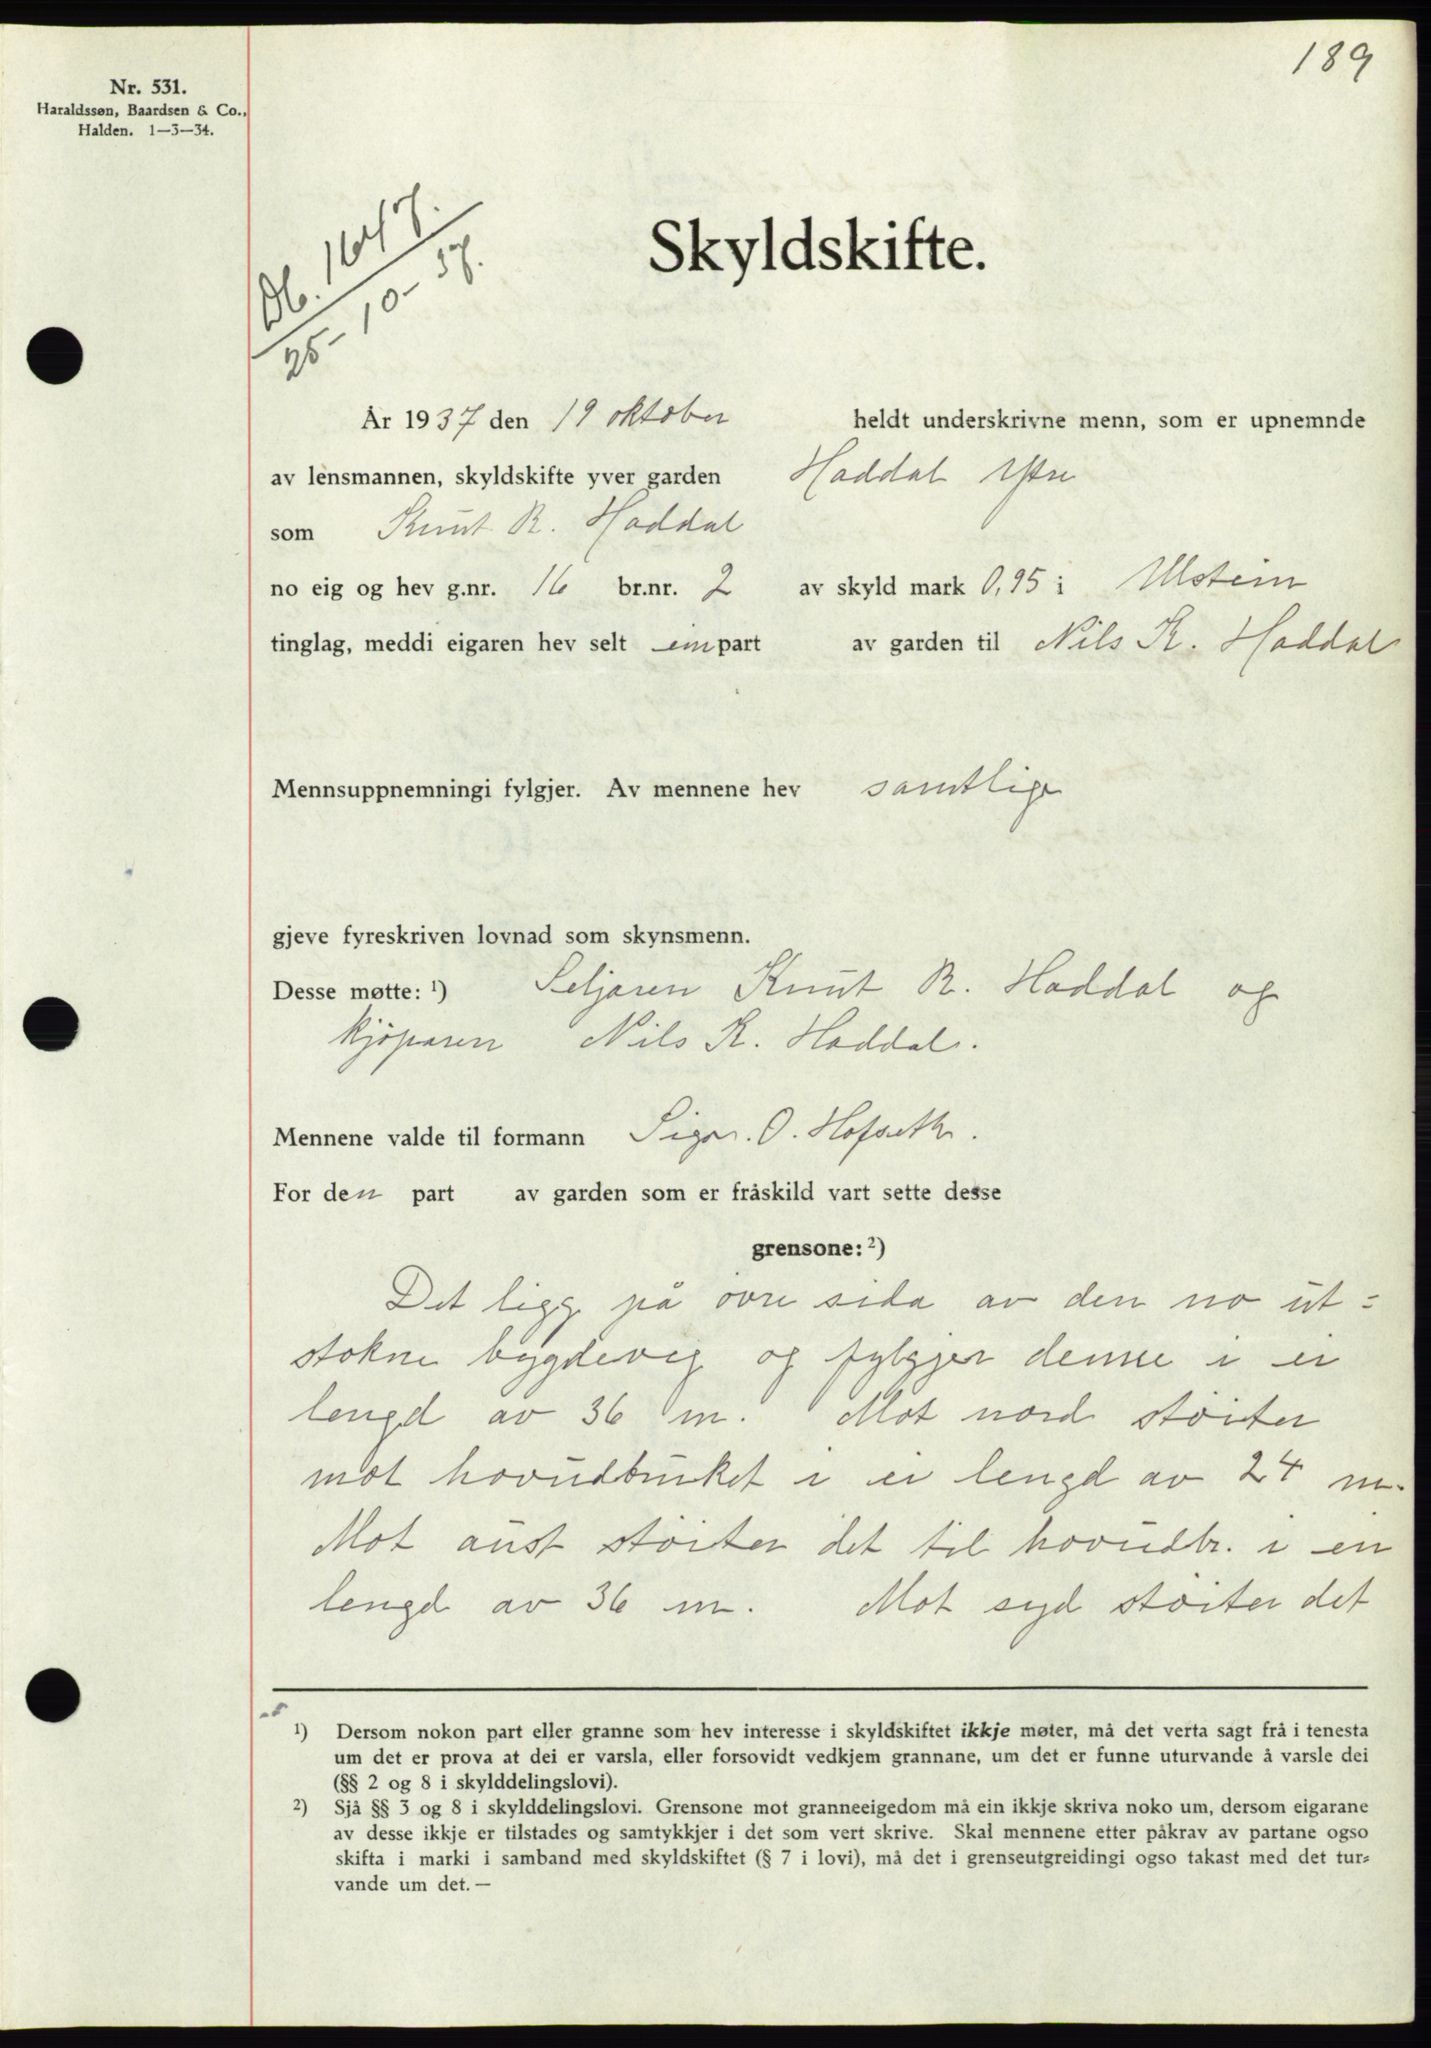 189
Nr. 531.
Haraldssøn, Baardsen & Co.,
Halden. 1—3—34.
Db. 1647.
25-10-37.
Skyldskifte.
År 1937 den 19 oktober heldt underskrivne menn, som er upnemnde
av lensmannen, skyldskifte yver garden Haddal Ytre
som Knut R. Haddal
no eig og hev g.nr. 16 br.nr. 2 av skyld mark 0,95 i Ulstein
tinglag, meddi eigaren hev selt ein part av garden til Nils K. Haddal
Mennsuppnemningi fylgjer. Av mennene hev samtlige
gjeve fyreskriven lovnad som skynsmenn.
Desse møtte: ¹) Seljaren Knut R. Haddal og
kjøparen Nils K. Haddal.
Mennene valde til formann Sigv. O. Hofseth.
For den part av garden som er fråskild vart sette desse
grensone: ²)
Det ligg på øvre sida av den no ut=
stokne bygdeveg og fylgjer denne i ei
lengd av 36 m. Mot nord støiter
mot hovudbruket i ei lengd av 24 m.
Mot aust støiter det til hovudbr. i en
lengd av 36 m. Mot syd støiter det
¹) Dersom nokon part eller granne som hev interesse i skyldskiftet ikkje møter, må det verta sagt frå i tenesta
um det er prova at dei er varsla, eller forsovidt vedkjem grannane, um det er funne uturvande å varsle dei
(§§ 2 og 8 i skylddelingslovi).
²) Sjå §§ 3 og 8 i skylddelingslovi. Grensone mot granneeigedom må ein ikkje skriva noko um, dersom eigarane
av desse ikkje er tilstades og samtykkjer i det som vert skrive. Skal mennene etter påkrav av partane ogso
skifta i marki i samband med skyldskiftet (§ 7 i lovi), må det i grenseutgreidingi ogso takast med det tur=
vande um det. —